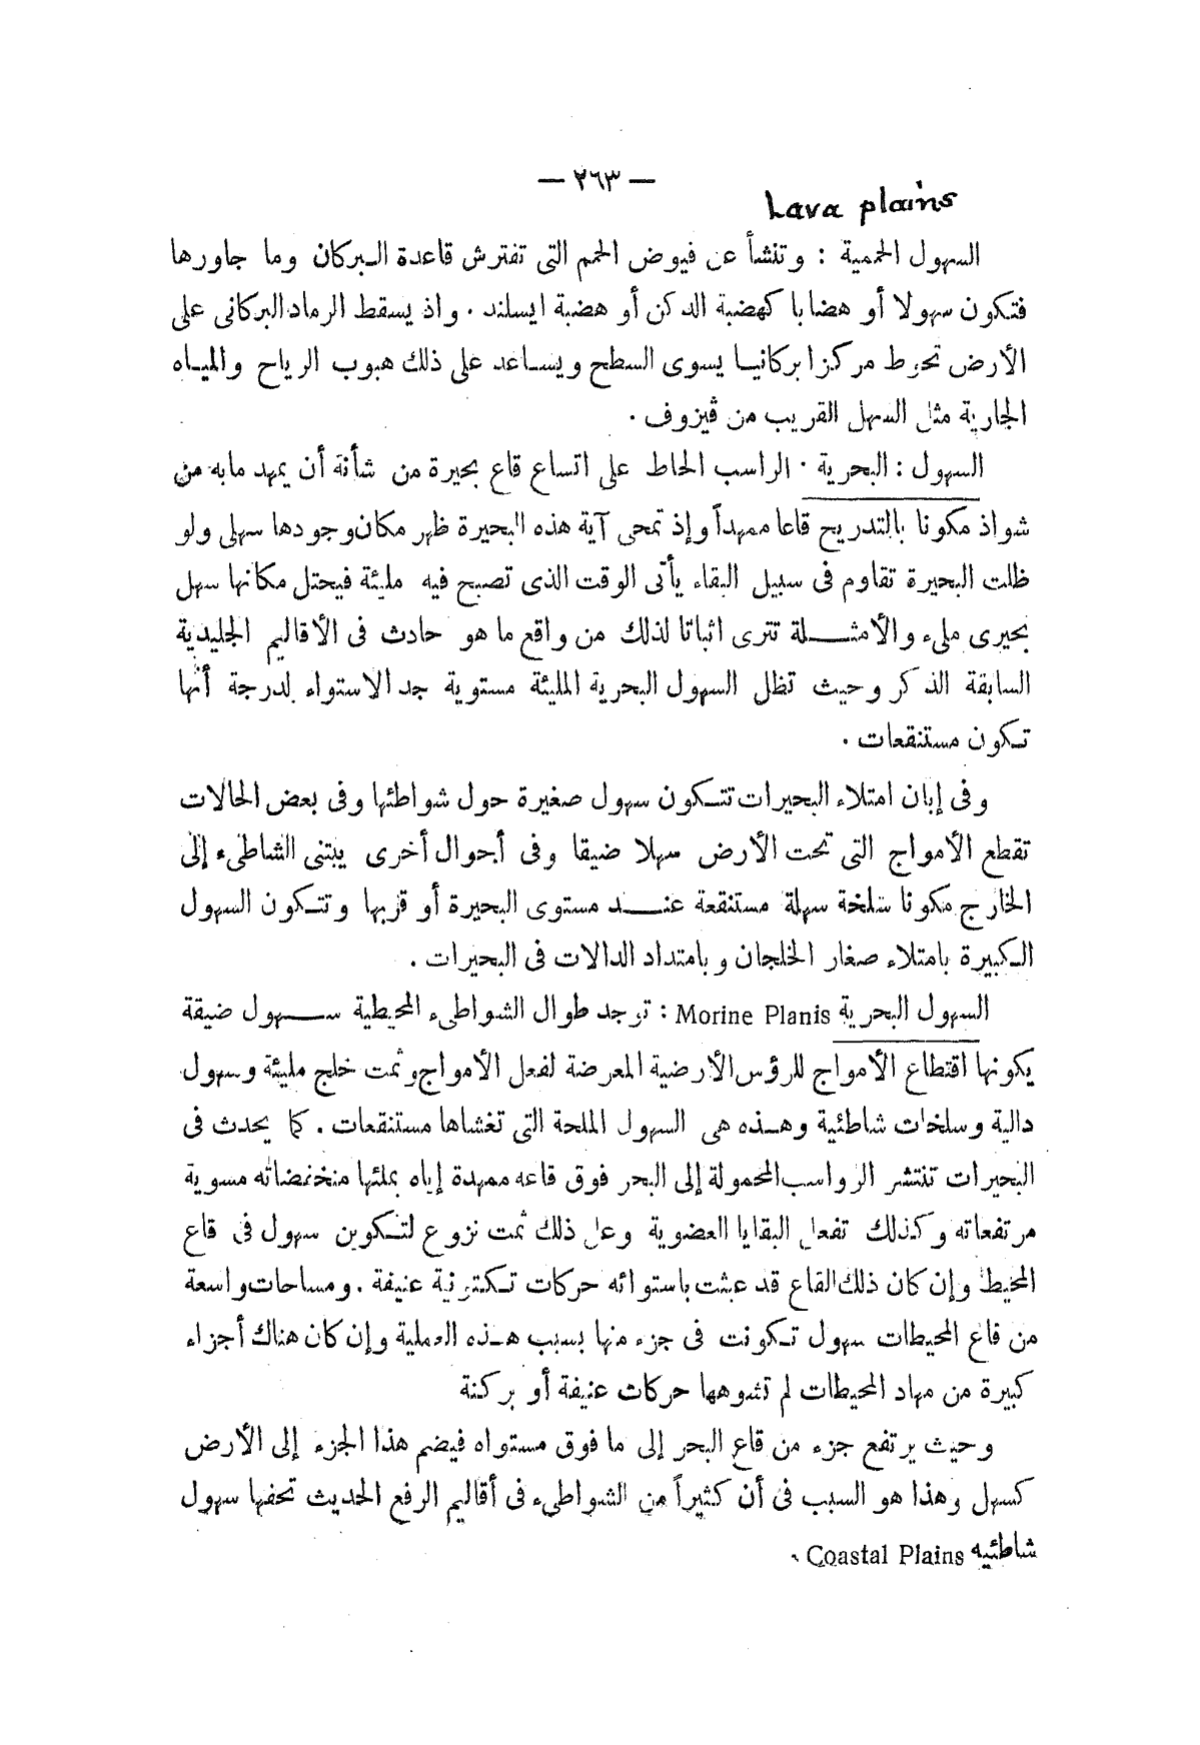 — ٢٦٣ —
Lava plains
السهول الحممية : وتنشأ عن فيوض الحمم التى تفترش قاعدة البركان وما جاورها
فتكون سهولا أو هضابا كهضبة الدكن أو هضبة ايسلند . واذ يسقط الرماد البركانى على
الأرض تحوط مركزا بركانيا يسوى السطح ويساعد على ذلك هبوب الرياح والمياه
الجارية مثل السهل القريب من ڤيزوف .
السهول : البحرية . الراسب الحاط على اتساع قاع بحيرة من شأنة أن يمهد مابه من
شواذ مكونا بالتدريج قاعا ممهداً وإذ تمحى آية هذه البحيرة ظهر مكان وجودها سهلى ولو
ظلت البحيرة تقاوم فى سبيل البقاء يأتى الوقت الذى تصبح فيه مليئة فيحتل مكانها سهل
بحيرى ملىء والأمثلة تترى اثباتا لذلك من واقع ما هو حادث فى الأقاليم الجليدية
السابقة الذكر وحيث تظل السهول البحرية المليئة مستوية جد الاستواء لدرجة أنها
تكون مستنقعات .
وفى إبان امتلاء البحيرات تتكون سهول صغيرة حول شواطئها وفى بعض الحالات
تقطع الأمواج التى تحت الأرض سهلا ضيقا وفى أحوال أخرى يبتنى الشاطىء إلى
الخارج مكونا سلخة سهلة مستنقعة عند مستوى البحيرة أو قربها وتتكون السهول
الكبيرة بامتلاء صغار الخلجان وبامتداد الدالات فى البحيرات .
السهول البحرية Morine Planis : توجد طوال الشواطىء المحيطية سهول ضيقة
يكونها اقتطاع الأمواج للرؤس الأرضية المعرضة لفعل الأمواج وثمت خلج مليئة وسهول
دالية وسلخات شاطئية وهذه هى السهول الملحة التى تغشاها مستنقعات . كما يحدث فى
البحيرات تنتشر الرواسب المحمولة إلى البحر فوق قاعه ممهدة إياه بملئها منخفضاته مسوية
مرتفعاته وكذلك تفعل البقايا العضوية وعلى ذلك ثمت نزوع لتكوين سهول فى قاع
المحيط وإن كان ذلك القاع قد عبثت باستوائه حركات تكتونية عنيفة . ومساحات واسعة
من قاع المحيطات سهول تكونت فى جزء منها بسبب هذه العملية وإن كان هناك أجزاء
كبيرة من مهاد المحيطات لم تشوهها حركات عنيفة أو بركنة
وحيث يرتفع جزء من قاع البحر إلى ما فوق مستواه فيضم هذا الجزء إلى الأرض
كسهل وهذا هو السبب فى أن كثيراً من الشواطىء فى أقاليم الرفع الحديث تحفها سهول
شاطئيه Coastal Plains .